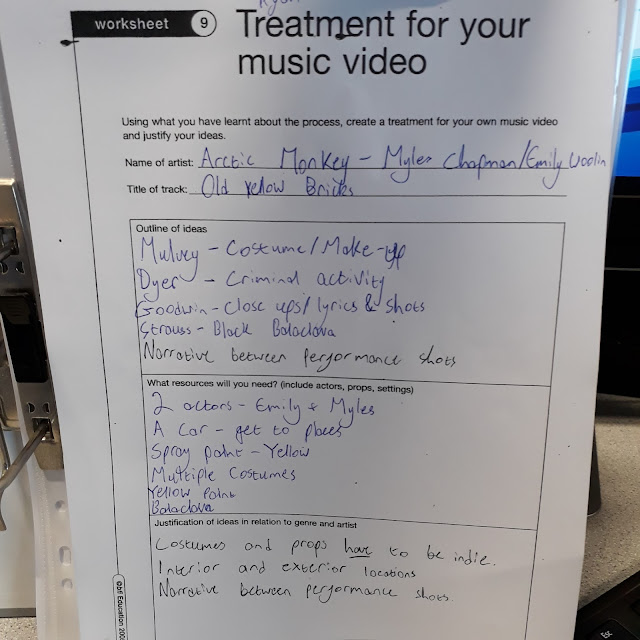 Ryan
worksheet 9
Treatment for your
music video
Using what you have learnt about the process, create a treatment for your own music video
and justify your ideas.
Name of artist: Arctic Monkey - Myles Chapman/Emily
Title of track: Old Yellow Bricks
Outline of ideas
Mulvey - Costume/Make-up
Dyer - Criminal activity
Goodwin - Close ups/lyrics & shots
Strauss - Black Balaclava
Narrative between performance shots
What resources will you need? (include actors, props, settings)
2 actors - Emily & Myles
A Car - get to places
Spray paint - Yellow
Multiple Costumes
Yellow Paint
Balaclava
Justification of ideas in relation to genre and artist
Costumes and props have to be indie.
Interior and exterior locations
Narrative between performance shots.
©bfi Education 200
Esc